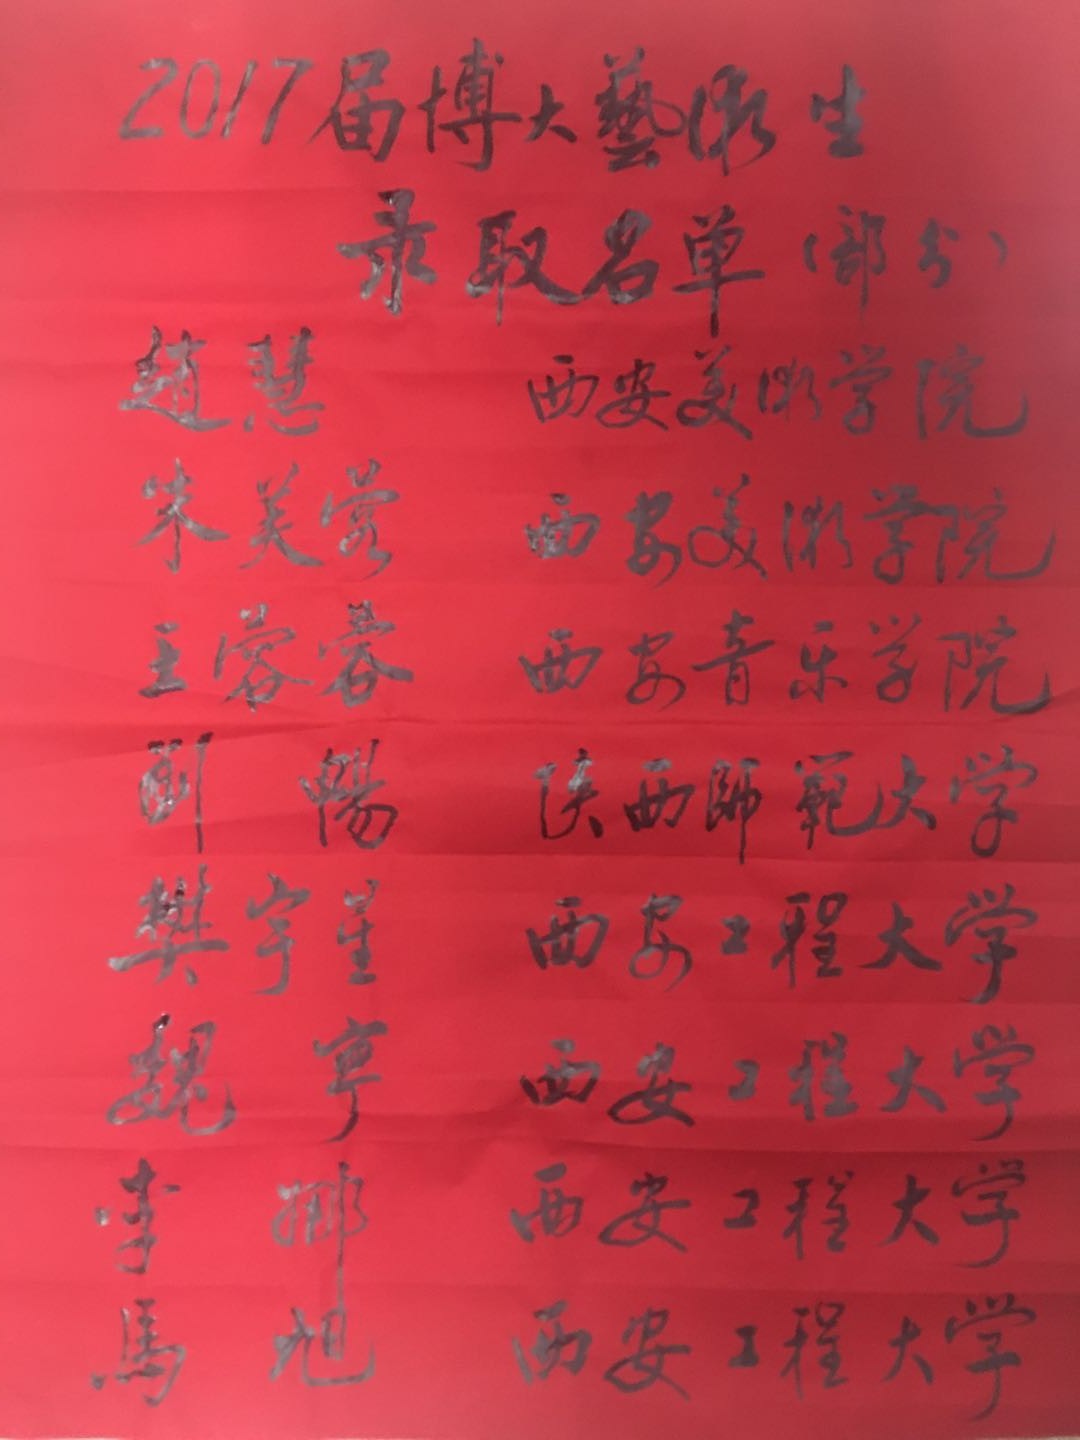 2017届博大藝術生
录取名单(部分)
趙慧 西安美術学院
朱芙蓉 西安美術学院
王蓉蓉 西安音乐学院
劉暢 陕西師範大学
樊宇星 西安工程大学
魏寧 西安工程大学
李娜 西安工程大学
馬旭 西安工程大学